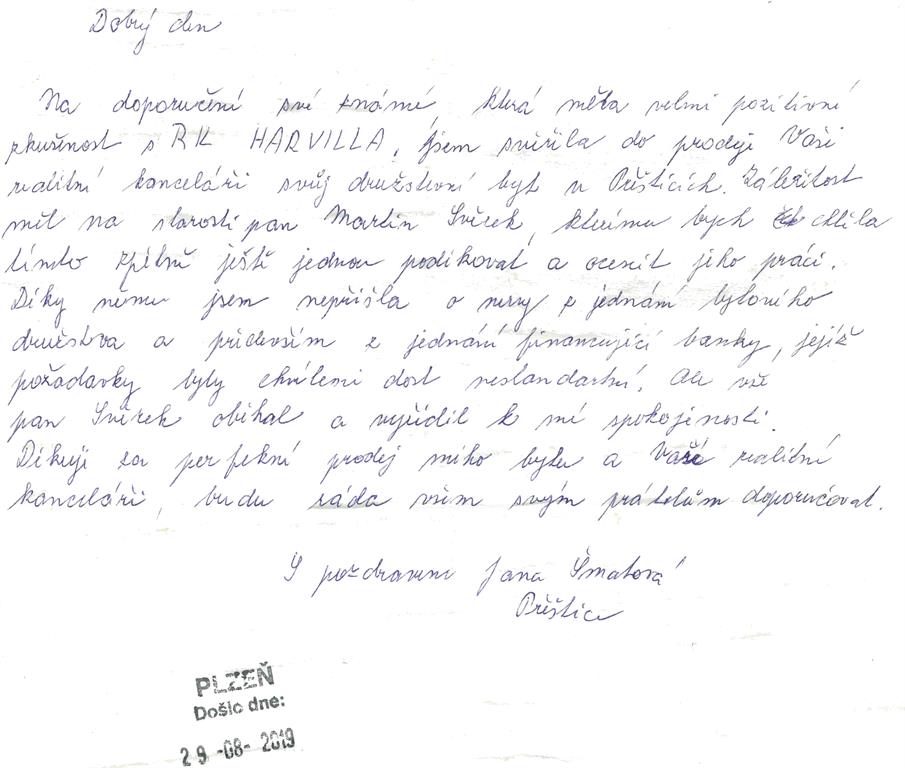 Dobrý den
Na doporučení své známé, která měla velmi pozitivní
zkušenost s RK HARVILLA, jsem svěřila do prodeje Vaší
realitní kanceláři svůj družstevní byt v Přešticích. Záležitost
měl na starosti pan Martin Svěrek, kterému bych chtěla
tímto zpětně ještě jednou poděkovat a ocenit jeho práci.
Díky němu jsem nepřišla o nervy z jednání bytového
družstva a především z jednání financující banky, jejíž
požadavky byly chvílemi dost nestandartní. Ale vše
pan Svěrek obíhal a vyřídil k mé spokojenosti.
Děkuji za perfekní prodej mého bytu a Vaší realitní
kanceláři, budu ráda všem svým přátelům doporučovat.
S pozdravem Jana Šmatová
Přeštice
PLZEŇ
Došlo dne:
29 -08- 2019